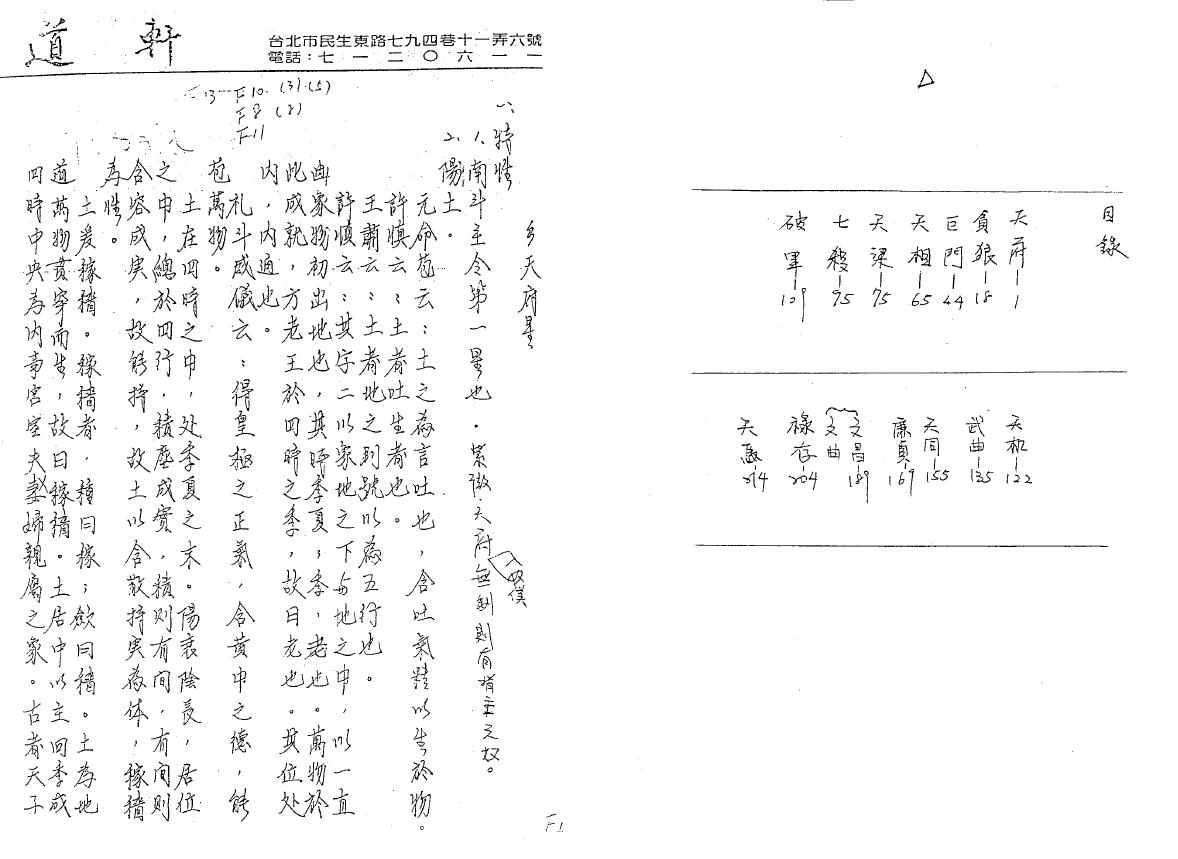 △
目錄
天府—1
貪狼—18
巨門—44
天相—65
天梁—75
七殺—95
破軍—109
天机—122
武曲—135
天同—155
廉貞—169
文昌 文曲—189
祿存—204
天馬—214
道軒
台北市民生東路七九四巷十一弄六號
電話:七一二〇六一一
F13 F10.(3).(5)
F8 (8)
F11
乡天府星
一、特性
1.南斗主令第一星也.紫微.天府無制則有
入奴僕
2.陽土。
元命苞云:土之為言吐也,含吐氣精以生於物。
許慎云:土者吐生者也。
王肅云:土者地之别號以為五行也。
許慎云:其字二以象地之下与地之中,以一直
幽象物初出地也,其時季夏;季,老也。萬物於
此成就,方老王於四時之季,故曰老也。其位处
内,内通也。
礼斗威儀云:得皇極之正氣,含黄中之德,能
苞萬物。
土在四時之中,处季夏之末。陽衰陰長,居位
之中,總於四行,積塵成實,積則有间,有间則
含容成实,故能持,故土以含散持实為体,稼穡
為性。
土爰稼穡。稼穡者,種曰稼;斂曰穡。土為地
道萬物貫穿而生,故曰稼穡。土居中以主四季成
四時中央為内事宮室夫妻婦親屬之象。古者天子
F1